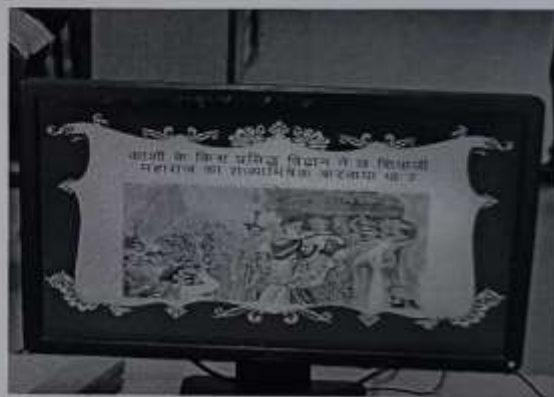 काशी के किस प्रसिद्ध विद्वान ने छ शिवाजी
महाराज का राज्याभिषेक करवाया था ?